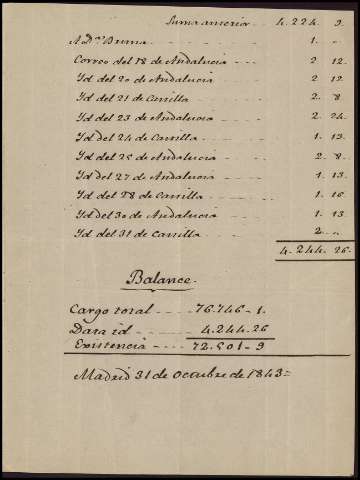 Suma anterior - - - 4.224. 9.
A Dn Bruma - - - 1. "
Correo del 18 de Andalucia - - 2 12.
Yd del 20 de Andalucia - - 2 12
Yd del 21 de Castilla - - - 2. 8
Yd del 23 de Andalucia - - 2. 24.
Yd del 24 de Castilla - - - 1. 13.
Yd del 25 de Andalucia - - 2. 8.
Yd del 27 de Andalucia - - 1. 13.
Yd del 28 de Castilla - - - 1. 16
Yd del 30 de Andalucia - - 1. 13
Yd del 31 de Castilla - - - 2. "
4.244. 26.
Balance.
Cargo total - - - - 76.746 - 1.
Data id - - - - - 4.244. 26
Existencia - - - - 72.501 - 9
Madrid 31 de Octubre de 1843=